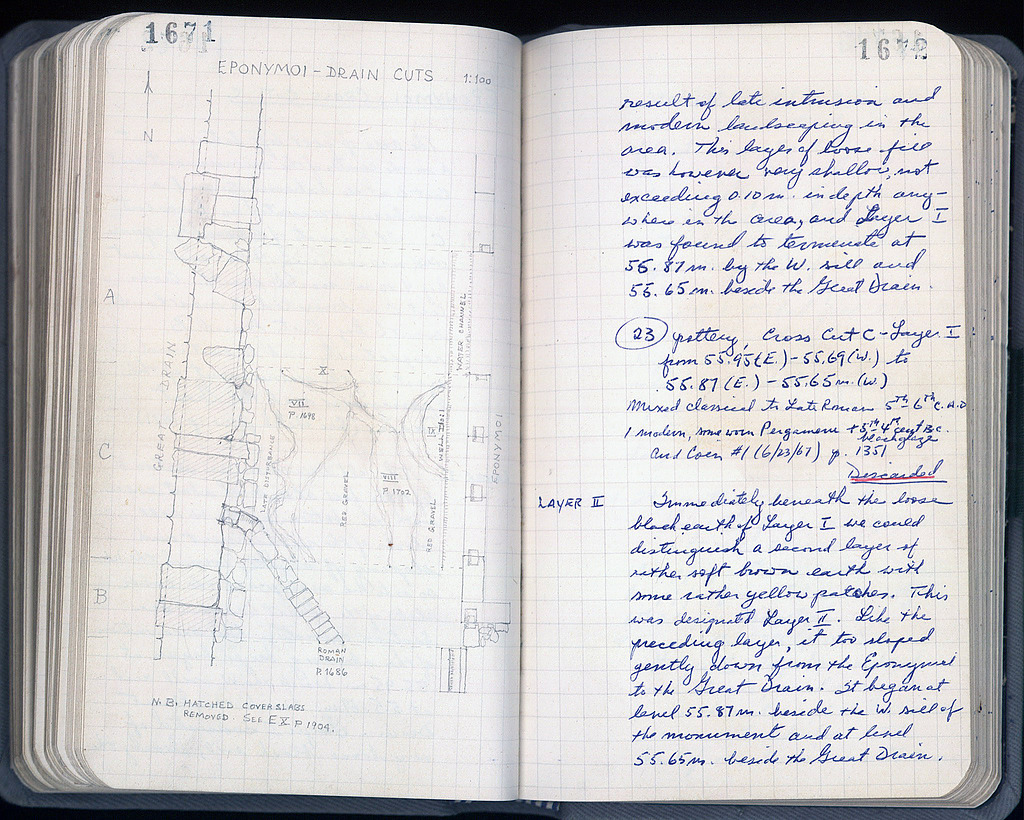 1671
EPONYMOI - DRAIN CUTS 1:100
N
A
GREAT DRAIN
WATER CHANNEL
X
VII
P. 1698
IX
WELL
EPONYMOI
C
LATE DISTURBANCE
RED GRAVEL
VIII
P 1702
RED GRAVEL
B
ROMAN
DRAIN
P. 1686
N.B. HATCHED COVERSLABS
REMOVED SEE E X P 1904.
1672
result of late intrusion and
modern landscaping in the
area. This layer of loose fill
was however very shallow, not
exceeding 0.10 m. in depth any-
where in the area, and Layer I
was found to terminate at
55.87 m. by the W. sill and
55.65 m. beside the Great Drain.
23 pottery, Cross Cut C - Layer I
from 55.95 (E.) - 55.69 (W.) to
55.87 (E.) - 55.65 m. (W.)
Mixed classical to Late Roman 5th - 6th C. A.D
1 modern, some worn Pergamene + 5th - 4th cent B.C.
blackglaze
and Coin #1 (6/23/67) p. 1351
Discarded
LAYER II Immediately beneath the loose
black earth of Layer I we could
distinguish a second layer of
rather soft brown earth with
some rather yellow patches. This
was designated Layer II. Like the
preceding layer, it too sloped
gently down from the Eponymoi
to the Great Drain. It began at
level 55.87 m. beside the W. sill of
the monument and at level
55.65 m. beside the Great Drain.